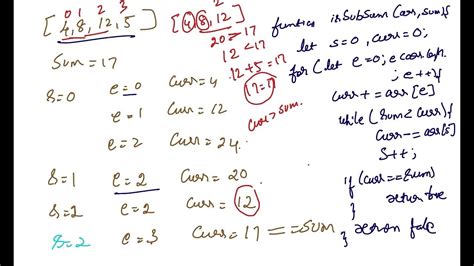 0 1 2 3
[4,8,12,5]
Sum = 17
s=0 e=0 Curr=4
e=1 Curr=12
e=2 Curr=24
s=1 e=2 Curr=20
s=2 e=2 Curr=12
s=2 e=3 Curr=17 ==sum
2
[4,8,12]
20>17
12<17
12+5=17
17=17
Curr>sum
function isSubSum(arr,sum){
let s=0, curr=0;
for(let e=0; e<arr.length
; e++){
curr+=arr[e]
while(Sum<Curr){
Curr-=arr[s]
s++;
}
if(curr==sum)
return true
}
return false
}